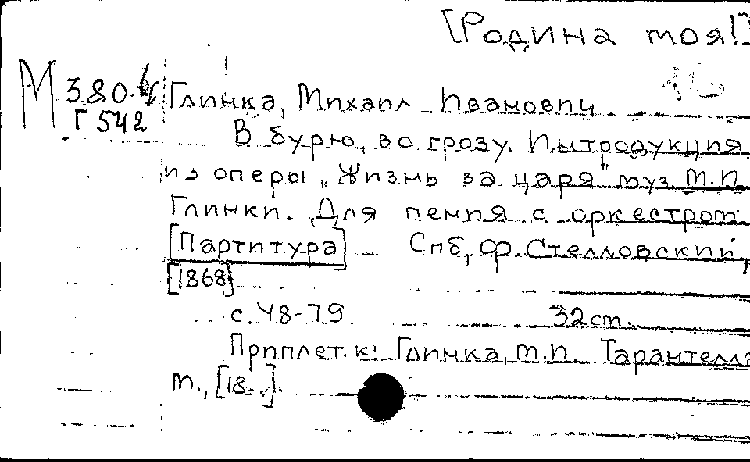 [Родина моя!]
М 380.4
Г 542
Глинка, Михаил Иванович.
В бурю, во грозу. Интродукция
из оперы „Жизнь за царя" муз. М.И.
Глинки. Для пения с оркестром.
[Партитура] Спб, Ф. Стелловский,
[1868]
с. 48-79 32 ст.
Приплет. к: Глинка, М.И. Тарантелла
М., [18..].